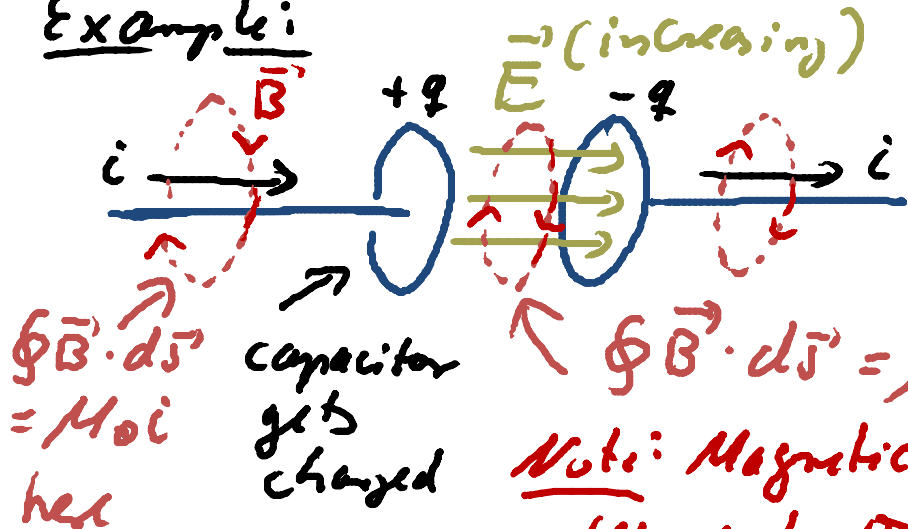 Example:
B⃗ +q E⃗ (increasing) -q
i i
∮B⃗·ds⃗
= μ₀i
here
capacitor
gets
charged
∮B⃗·ds⃗ =
Note: Magnetic